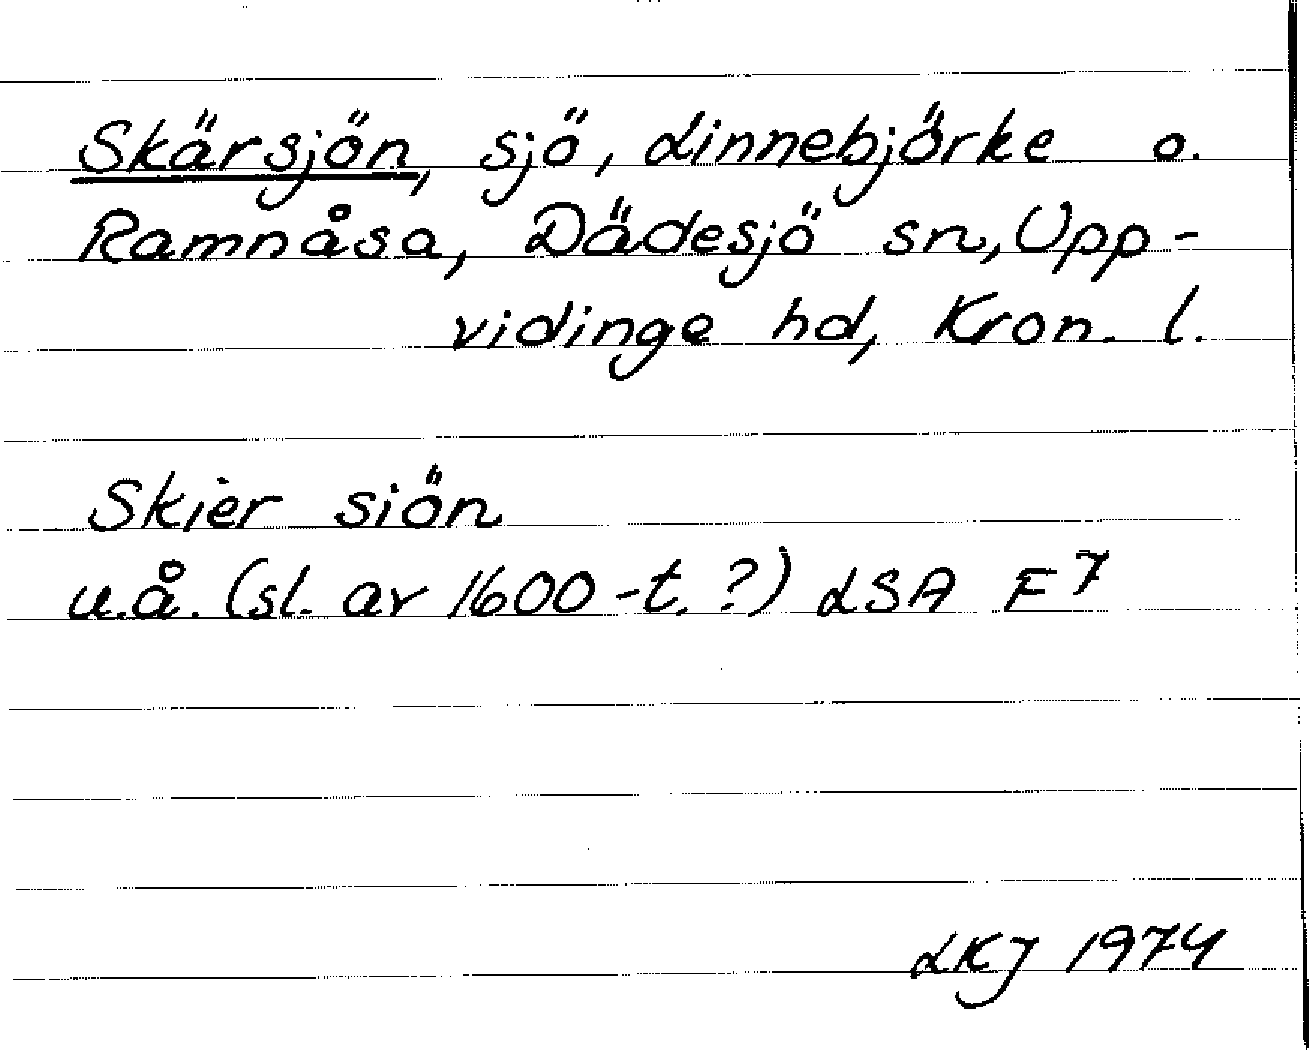 Skärsjön, sjö, Linnebjörke o.
Ramnåsa, Dädesjö sn, Upp-
vidinge hd, Kron. l.
Skier siön
u.å. (sl. av 1600-t. ?) LSA F7
LKJ 1974